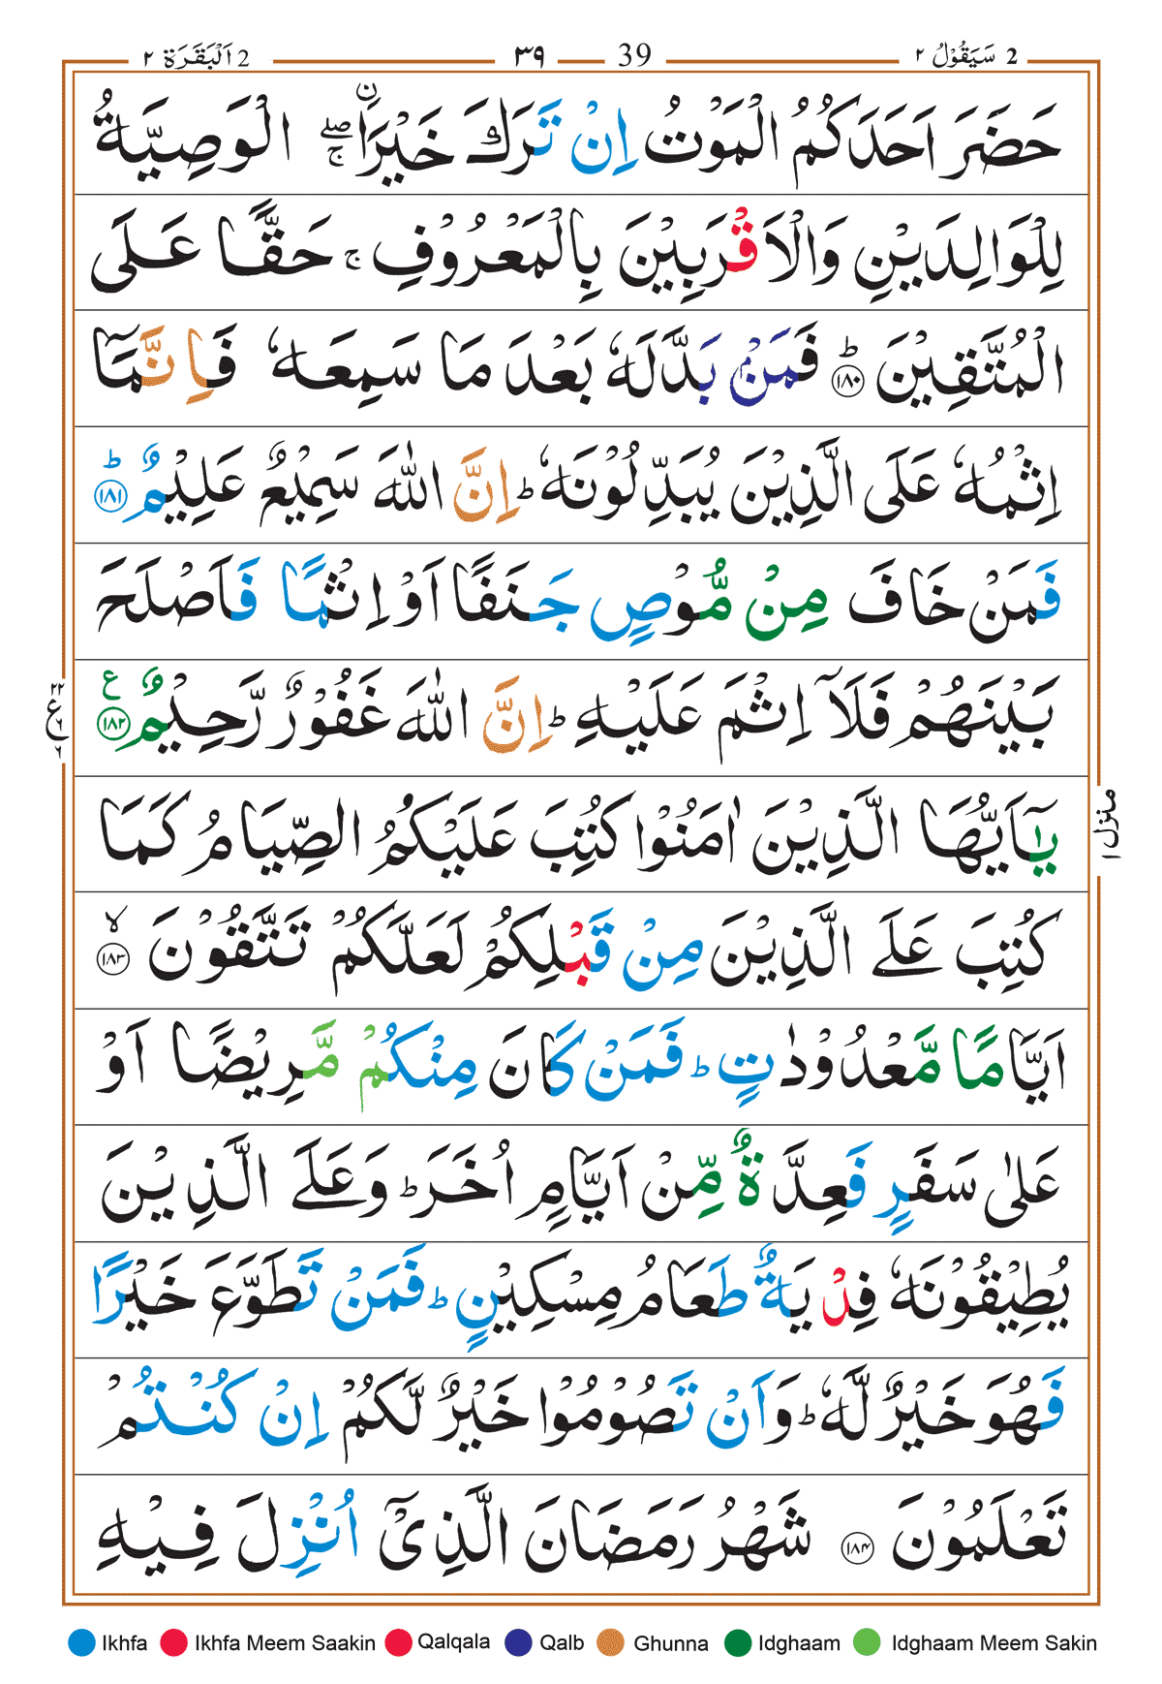 2 اَلْبَقَرَة ٢
٣٩ 39
2 سَيَقُوْلُ ٢
حَضَرَ اَحَدَكُمُ الْمَوْتُ اِنْ تَرَكَ خَيْرَاۨ ۖۚ الْوَصِيَّةُ
لِلْوَالِدَيْنِ وَالْاَقْرَبِيْنَ بِالْمَعْرُوْفِ ۚ حَقًّا عَلَى
الْمُتَّقِيْنَ ؕ ﴿١٨٠﴾ فَمَنْۢ بَدَّلَهٗ بَعْدَ مَا سَمِعَهٗ فَاِنَّمَاۤ
اِثْمُهٗ عَلَى الَّذِيْنَ يُبَدِّلُوْنَهٗ ؕ اِنَّ اللّٰهَ سَمِيْعٌ عَلِيْمٌ ؕ ﴿١٨١﴾
فَمَنْ خَافَ مِنْ مُّوْصٍ جَنَفًا اَوْ اِثْمًا فَاَصْلَحَ
بَيْنَهُمْ فَلَاۤ اِثْمَ عَلَيْهِ ؕ اِنَّ اللّٰهَ غَفُوْرٌ رَّحِيْمٌ ﴿١٨٢﴾ ع
٢٢ ع ٦ ٦
يٰۤاَيُّهَا الَّذِيْنَ اٰمَنُوْا كُتِبَ عَلَيْكُمُ الصِّيَامُ كَمَا
منزل ١
كُتِبَ عَلَى الَّذِيْنَ مِنْ قَبْلِكُمْ لَعَلَّكُمْ تَتَّقُوْنَ ۙ ﴿١٨٣﴾
اَيَّامًا مَّعْدُوْدٰتٍ ؕ فَمَنْ كَانَ مِنْكُمْ مَّرِيْضًا اَوْ
عَلٰى سَفَرٍ فَعِدَّةٌ مِّنْ اَيَّامٍ اُخَرَ ؕ وَعَلَى الَّذِيْنَ
يُطِيْقُوْنَهٗ فِدْيَةٌ طَعَامُ مِسْكِيْنٍ ؕ فَمَنْ تَطَوَّعَ خَيْرًا
فَهُوَ خَيْرٌ لَّهٗ ؕ وَاَنْ تَصُوْمُوْا خَيْرٌ لَّكُمْ اِنْ كُنْتُمْ
تَعْلَمُوْنَ ﴿١٨٤﴾ شَهْرُ رَمَضَانَ الَّذِيْۤ اُنْزِلَ فِيْهِ
Ikhfa Ikhfa Meem Saakin Qalqala Qalb Ghunna Idghaam Idghaam Meem Sakin